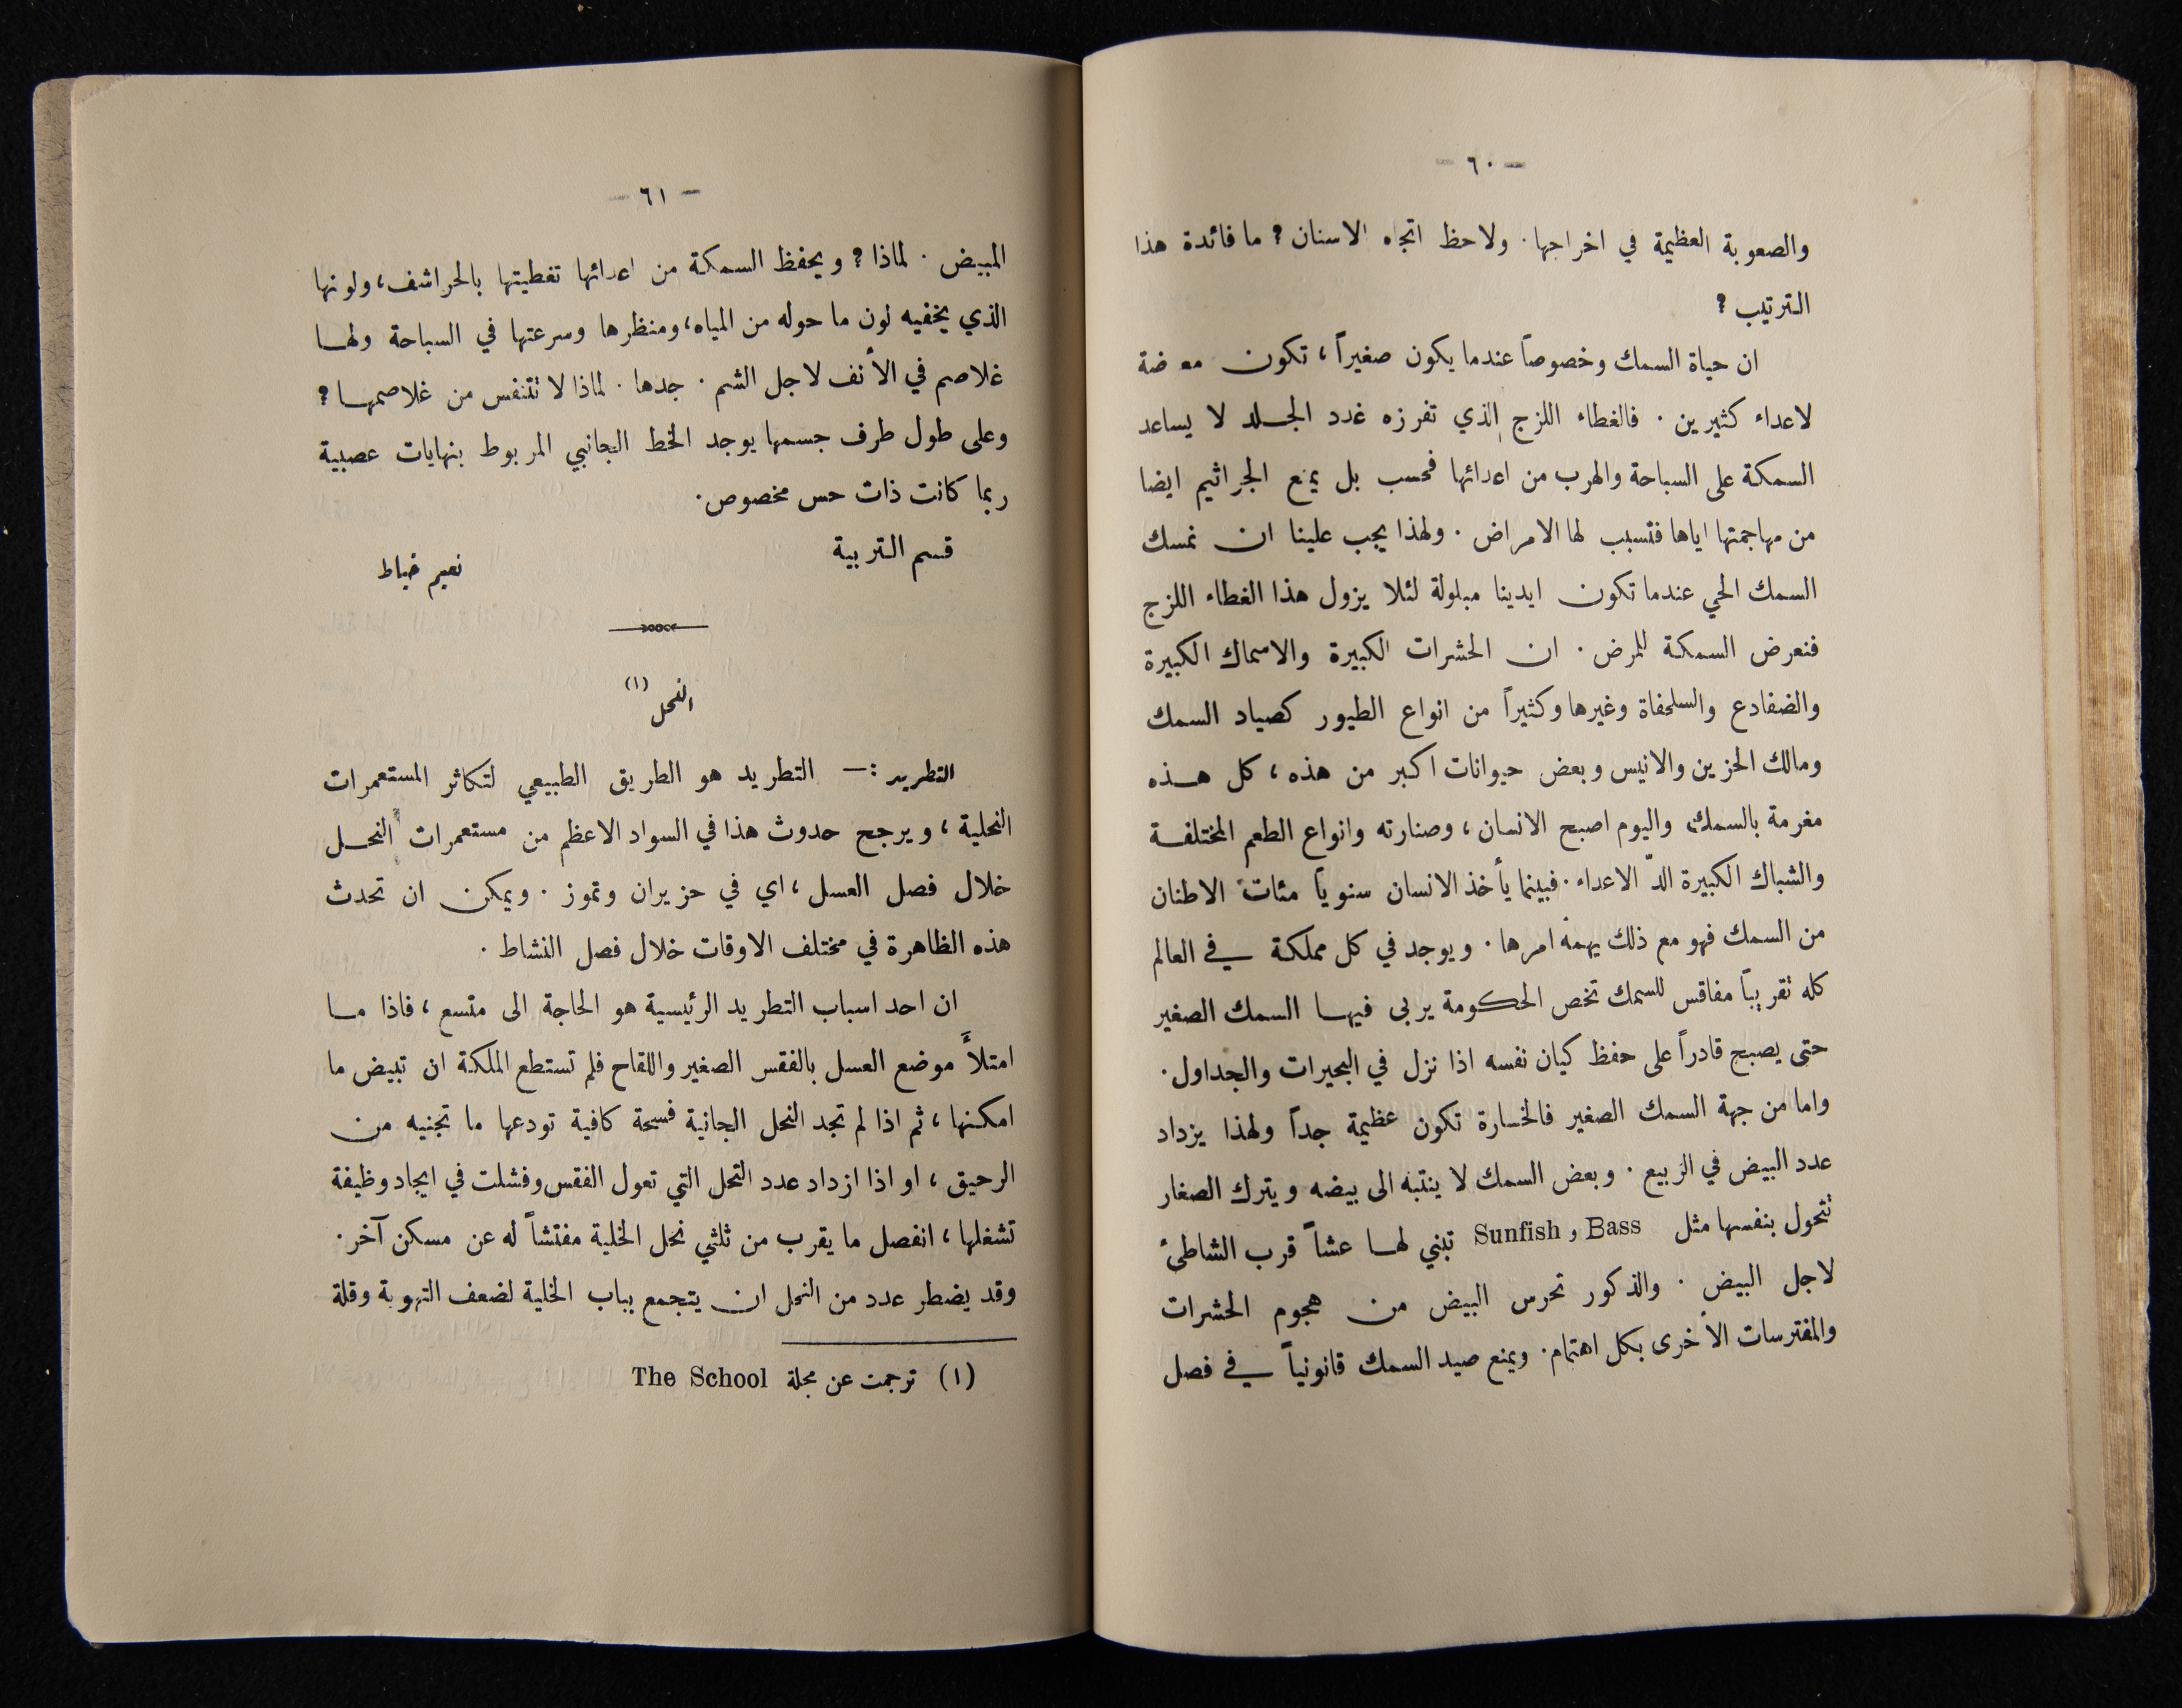 — ٦٠ —
والصعوبة العظيمة في اخراجها. ولاحظ اتجاه الاسنان؟ ما فائدة هذا
الترتيب؟
ان حياة السمك وخصوصاً عندما يكون صغيراً، تكون مع ضة
لاعداء كثيرين. فالغطاء اللزج الذي تفرزه غدد الجلد لا يساعد
السمكة على السباحة والهرب من اعدائها فحسب بل يمنع الجراثيم ايضا
من مهاجمتها اياها فتسبب لها الامراض. ولهذا يجب علينا ان نمسك
السمك الحي عندما تكون ايدينا مبلولة لئلا يزول هذا الغطاء اللزج
فنعرض السمكة للمرض. ان الحشرات الكبيرة والاسماك الكبيرة
والضفادع والسلحفاة وغيرها وكثيراً من انواع الطيور كصياد السمك
ومالك الحزين والانيس وبعض حيوانات اكبر من هذه، كل هذه
مغرمة بالسمك واليوم اصبح الانسان، وصنارته وانواع الطعم المختلفة
والشباك الكبيرة الدّ الاعداء. فبينما يأخذ الانسان سنوياً مئات الاطنان
من السمك فهو مع ذلك يهمه امرها. ويوجد في كل مملكة في العالم
كله تقريباً مفاقس للسمك تخص الحكومة يربى فيها السمك الصغير
حتى يصبح قادراً على حفظ كيان نفسه اذا نزل في البحيرات والجداول.
واما من جهة السمك الصغير فالخسارة تكون عظيمة جداً ولهذا يزداد
عدد البيض في الربيع. وبعض السمك لا ينتبه الى بيضه ويترك الصغار
تتحول بنفسها مثل Bass و Sunfish تبني لها عشاً قرب الشاطئ
لاجل البيض. والذكور تحرس البيض من هجوم الحشرات
والمفترسات الأخرى بكل اهتمام. ويمنع صيد السمك قانونياً في فصل
— ٦١ —
المبيض. لماذا؟ ويحفظ السمكة من اعدائها تغطيتها بالحراشف، ولونها
الذي يخفيه لون ما حوله من المياه، ومنظرها وسرعتها في السباحة ولها
غلاصم في الأنف لاجل الشم. جدها. لماذا لا تتنفس من غلاصمها؟
وعلى طول طرف جسمها يوجد الخط الجانبي المربوط بنهايات عصبية
ربما كانت ذات حس مخصوص.
قسم التربية نعيم خياط
النحل (١)
التطريد :— التطريد هو الطريق الطبيعي لتكاثر المستعمرات
النحلية، ويرجح حدوث هذا في السواد الاعظم من مستعمرات النحل
خلال فصل العسل، اي في حزيران وتموز. ويمكن ان تحدث
هذه الظاهرة في مختلف الاوقات خلال فصل النشاط.
ان احد اسباب التطريد الرئيسية هو الحاجة الى متسع، فاذا ما
امتلأ موضع العسل بالفقس الصغير واللقاح فلم تستطع الملكة ان تبيض ما
امكنها، ثم اذا لم تجد النحل الجانية فسحة كافية تودعها ما تجنيه من
الرحيق، او اذا ازداد عدد النحل التي تعول الفقس وفشلت في ايجاد وظيفة
تشغلها، انفصل ما يقرب من ثلثي نحل الخلية مفتشاً له عن مسكن آخر.
وقد يضطر عدد من النحل ان يتجمع بباب الخلية لضعف التهوية وقلة
(١) ترجمت عن مجلة The School